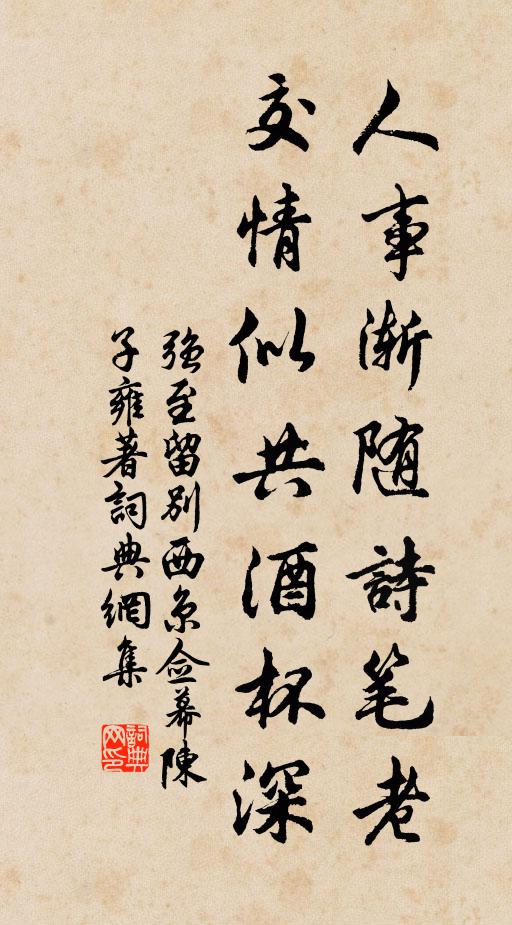 人事渐随詩笔老
交情似共酒杯深
强至留别西京佥幕陳
子雍著詞典網集
詞典
网印